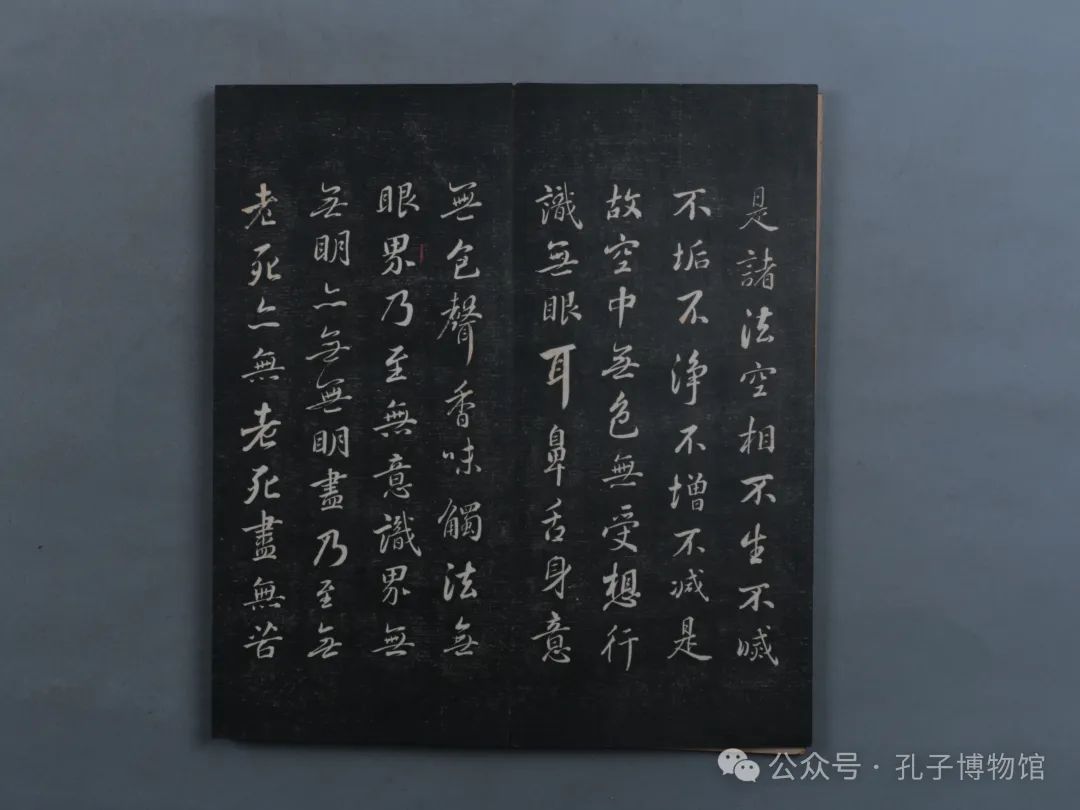 是諸法空相不生不滅
不垢不淨不增不减是
故空中無色無受想行
識無眼耳鼻舌身意
無色聲香味觸法無
眼界乃至無意識界無
無明亦無無明盡乃至無
老死亦無老死盡無苦
公众号·孔子博物馆